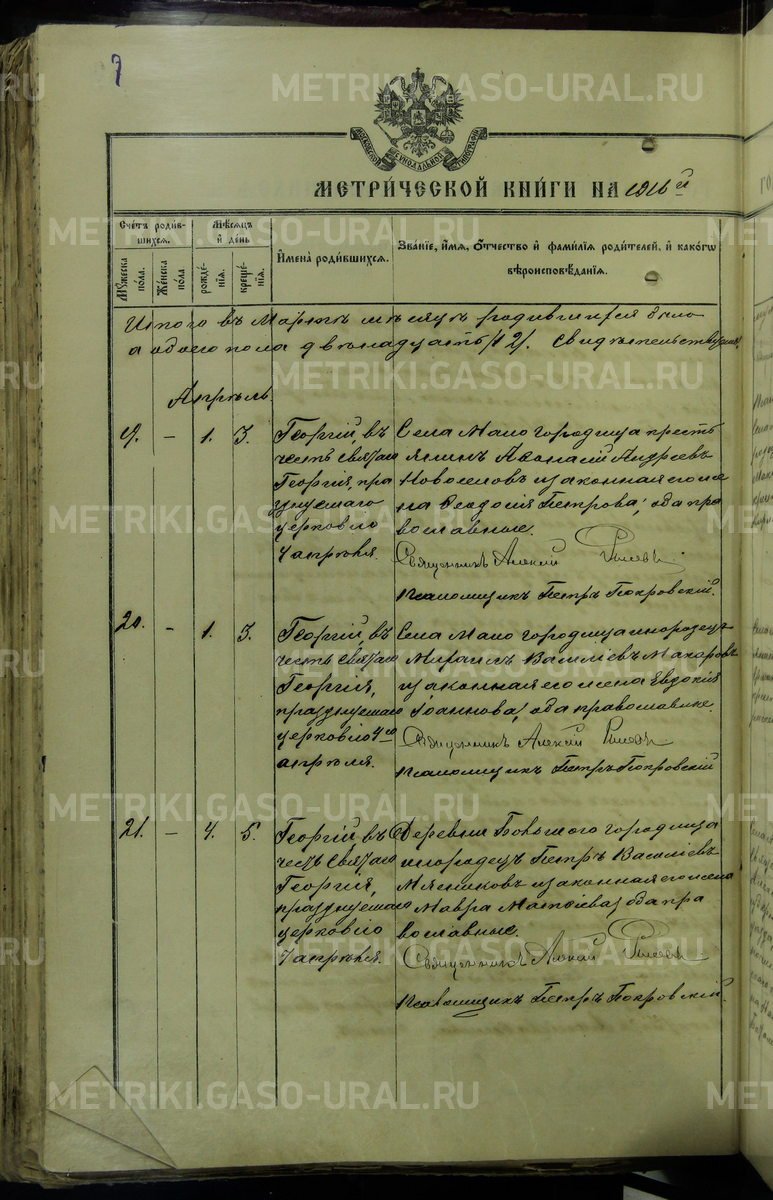 МЕТРИ́ЧЕСКОЙ КНИ́ГИ НА 1916й
МОСКОВСКОЙ СѴНОДАЛЬНОЙ ТИПОГРАФІИ
Сче́тъ роди́в-
шихся.
Мѣ́сяцъ
и҆ де́нь
И҆мена̀ роди́вшихся.
Зва́нїе, и҆́мѧ, ѻ҆́тчество и҆ фами́лїѧ роди́телей, и҆ како́гѡ
вѣроисповѣ́данїѧ.
Мꙋ́жеска
по́ла.
Же́нска
по́ла
рожде́-
нїѧ.
креще́-
нїѧ.
Итого въ Мартѣ мѣсяцѣ родившихся было
обоего пола двѣнадцать /12/. Свидѣтельствуемъ
Апрѣль
19. – 1. 3.
Георгій, въ
честь Святаго
Георгія, пра
зднуемаго
церковію
4 апрѣля.
Села Мало городища кресть
янинъ Аѳанасій Андреевъ
Новоселовъ и законная его же
на Ѳеодосія Петрова, оба пра
вославные.
Священникъ Алексій
Псаломщикъ Петръ Покровскій.
20. – 1. 3.
Георгій, въ
честь Святаго
Георгія,
празднуемаго
церковію 4го
апрѣля.
Села Мало городища инородецъ
Михаилъ Василіевъ Макаровъ
и законная его жена Евдокія
Іоаннова, оба православные.
Священникъ Алексій
Псаломщикъ Петръ Покровскій
21. – 4. 5.
Георгій, въ
честь Святаго
Георгія,
празднуемаго
церковію
4 апрѣля.
Деревни Большого городища
инородецъ Петръ Василіевъ
и законная его жена
Мавра Матѳіева, оба пра
вославные.
Священникъ Алексій
Псаломщикъ Петръ Покровскій.
METRIKI.GASO-URAL.RU